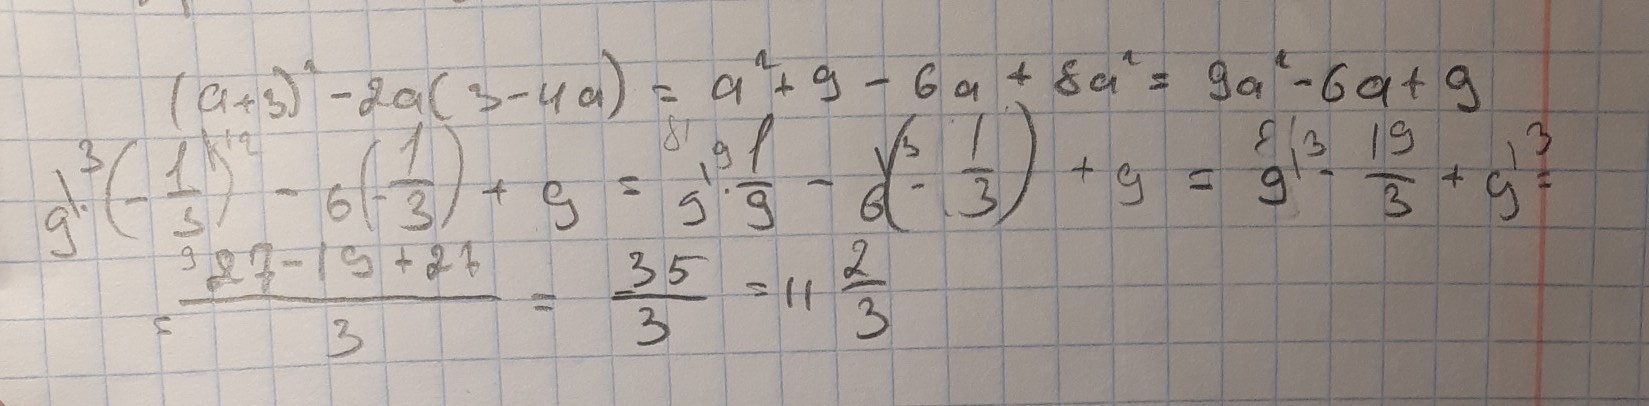 (a+3)² - 2a(3-4a) = a² + 9 - 6a + 8a² = 9a² - 6a + 9
9·(-1/3)² - 6(-1/3) + 9 = 9·1/9 - 6(-1/3) + 9 = 9 - 19/3 + 9 =
= 27-19+27/3 = 35/3 = 11 2/3